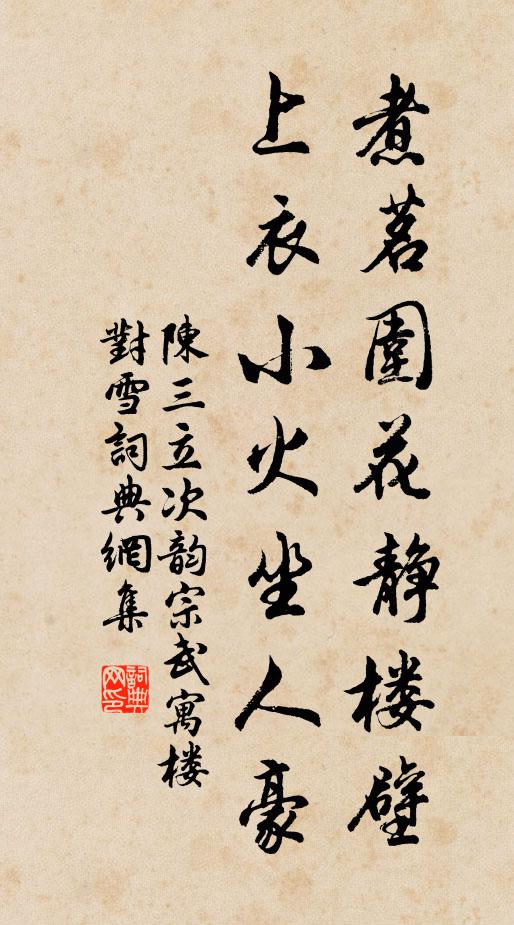 煮茗圍花靜楼壁
上衣小火坐人豪
陳三立次韵宗武寓楼
對雪詞典網集
詞典网印